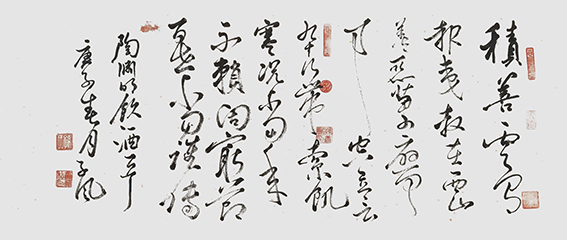 積善云有
報夷叔在西山
善惡苟不應
何事空立言
九十行帶索飢
寒況當年
不賴固窮節
百世當誰傳
陶淵明飲酒
庚子春月子風